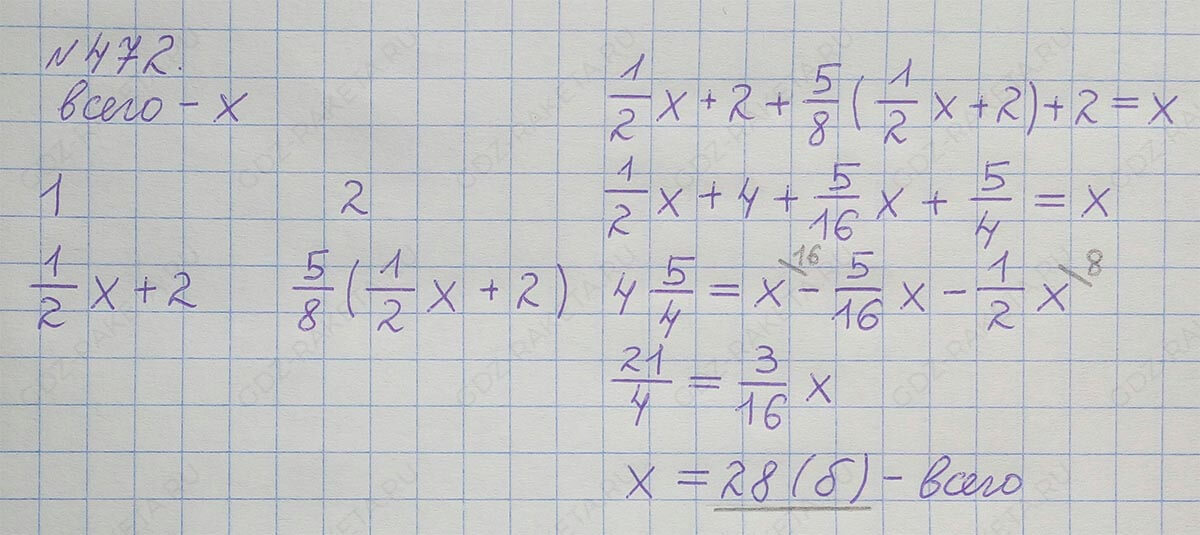 №472.
всего – x
1 2
1/2 x + 2 5/8 (1/2 x + 2)
1/2 x + 2 + 5/8 (1/2 x + 2) + 2 = x
1/2 x + 4 + 5/16 x + 5/4 = x
4 5/4 = x\16 – 5/16 x – 1/2 x\8
21/4 = 3/16 x
x = 28 (б) – всего
GDZ-RAKETA.RU